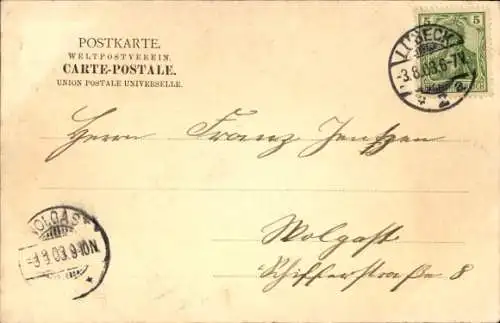 POSTKARTE.
WELTPOSTVEREIN.
CARTE-POSTALE.
UNION POSTALE UNIVERSELLE.
5 5
LÜBECK
-3.8.03.6-7N.
2
Herrn Franz Jentzen
Wolgast
Schifferstraße 8
WOLGAST
8.03.9-10N